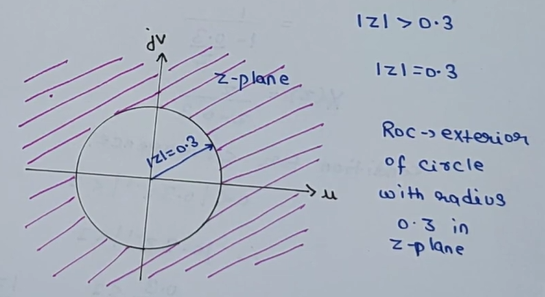 jv
z-plane
|z|=0.3
u
|z| > 0.3
|z| = 0.3
ROC → exterior
of circle
with radius
0.3 in
z-plane